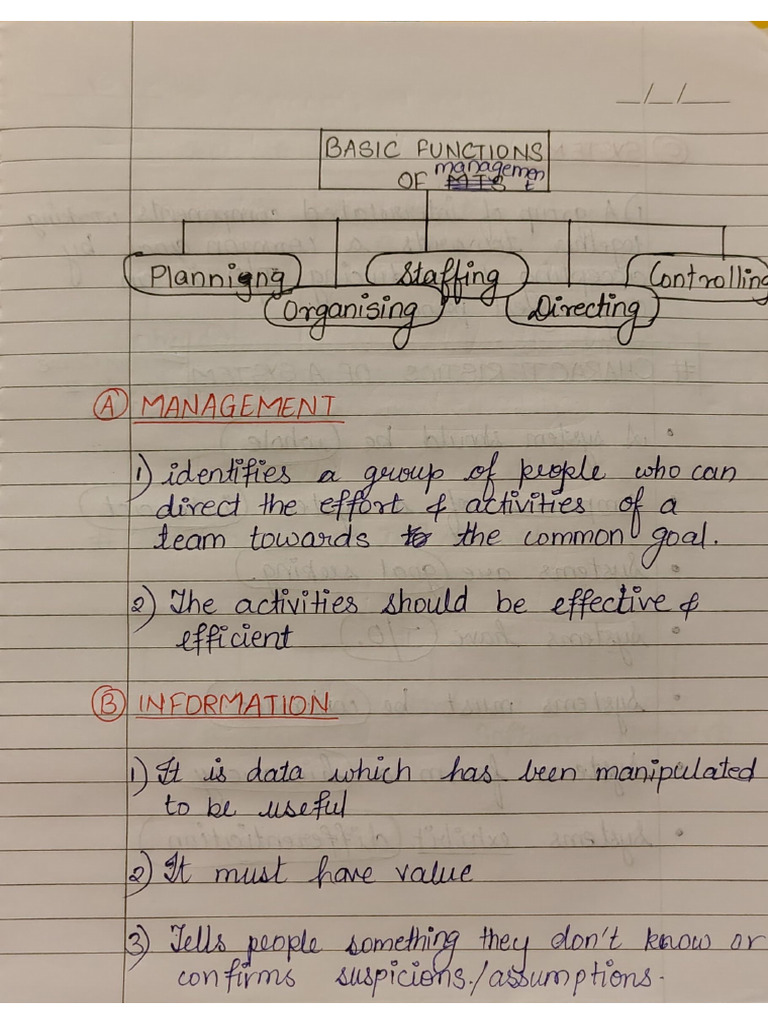 __/__/____
BASIC FUNCTIONS
OF management
Plannigng
Organising
Staffing
Directing
Controlling
Ⓐ MANAGEMENT
1) identifies a group of people who can
direct the effort & activities of a
team towards the common goal.
2) The activities should be effective &
efficient
Ⓑ INFORMATION
1) It is data which has been manipulated
to be useful
2) It must have value
3) Tells people something they don't know or
confirms suspicions./assumptions.